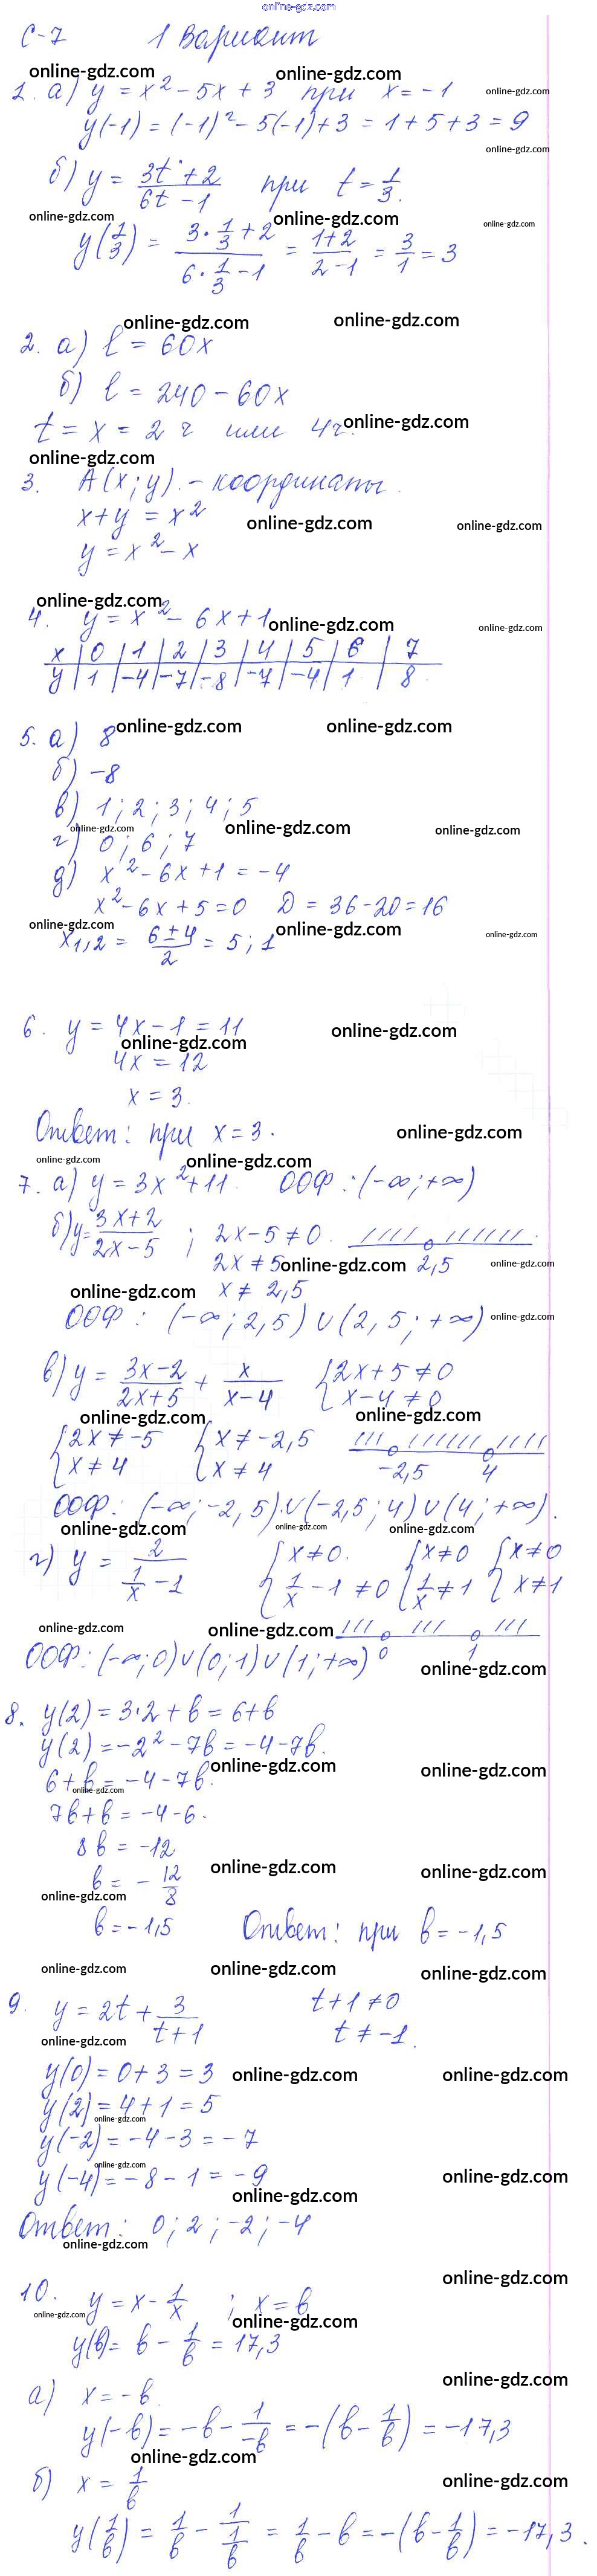 online-gdz.com
С-7 1 Вариант
online-gdz.com online-gdz.com
1. а) y = x² - 5x + 3 при x = -1 online-gdz.com
y(-1) = (-1)² - 5(-1) + 3 = 1 + 5 + 3 = 9
online-gdz.com
б) y = (3t + 2)/(6t - 1) при t = 1/3.
online-gdz.com online-gdz.com online-gdz.com
y(1/3) = (3·1/3 + 2)/(6·1/3 - 1) = (1+2)/(2-1) = 3/1 = 3
online-gdz.com online-gdz.com
2. а) l = 60x
б) l = 240 - 60x
t = x = 2 ч или 4ч. online-gdz.com
online-gdz.com
3. A(x; y) - координаты.
x + y = x² online-gdz.com online-gdz.com
y = x² - x
online-gdz.com
4. y = x² - 6x + 1 online-gdz.com online-gdz.com
x | 0 | 1 | 2 | 3 | 4 | 5 | 6 | 7
y | 1 | -4 | -7 | -8 | -7 | -4 | 1 | 8
5. а) 8 online-gdz.com online-gdz.com
б) -8
в) 1; 2; 3; 4; 5
online-gdz.com online-gdz.com online-gdz.com
г) 0; 6; 7
д) x² - 6x + 1 = -4
x² - 6x + 5 = 0 D = 36 - 20 = 16
online-gdz.com online-gdz.com online-gdz.com
x1,2 = (6 ± 4)/2 = 5; 1
6. y = 4x - 1 = 11 online-gdz.com
online-gdz.com
4x = 12
x = 3.
Ответ: при x = 3. online-gdz.com
online-gdz.com online-gdz.com
7. а) y = 3x² + 11. ООФ: (-∞; +∞)
б) y = (3x + 2)/(2x - 5); 2x - 5 ≠ 0.
2x ≠ 5 online-gdz.com 2,5 online-gdz.com
online-gdz.com x ≠ 2,5
ООФ: (-∞; 2,5) ∪ (2,5; +∞) online-gdz.com
в) y = (3x - 2)/(2x + 5) + x/(x - 4) { 2x + 5 ≠ 0
x - 4 ≠ 0
online-gdz.com online-gdz.com
{ 2x ≠ -5 { x ≠ -2,5
x ≠ 4 x ≠ 4 -2,5 4
ООФ: (-∞; -2,5) ∪ (-2,5; 4) ∪ (4; +∞).
online-gdz.com online-gdz.com online-gdz.com
г) y = 2/(1/x - 1) { x ≠ 0. { x ≠ 0 { x ≠ 0
1/x - 1 ≠ 0 1/x ≠ 1 x ≠ 1
online-gdz.com online-gdz.com
ООФ: (-∞; 0) ∪ (0; 1) ∪ (1; +∞) 0 1
online-gdz.com
8. y(2) = 3·2 + b = 6 + b
y(2) = -2² - 7b = -4 - 7b.
online-gdz.com online-gdz.com
6 + b = -4 - 7b.
online-gdz.com
7b + b = -4 - 6.
8b = -12
online-gdz.com online-gdz.com
b = - 12/8
online-gdz.com
b = -1,5 Ответ: при b = -1,5
online-gdz.com online-gdz.com online-gdz.com
9. y = 2t + 3/(t + 1) t + 1 ≠ 0
t ≠ -1.
online-gdz.com
y(0) = 0 + 3 = 3 online-gdz.com online-gdz.com
y(2) = 4 + 1 = 5
online-gdz.com
y(-2) = -4 - 3 = -7
online-gdz.com
y(-4) = -8 - 1 = -9 online-gdz.com
online-gdz.com
Ответ: 0; 2; -2; -4
online-gdz.com
online-gdz.com
10. y = x - 1/x; x = b
online-gdz.com online-gdz.com
y(b) = b - 1/b = 17,3
online-gdz.com
а) x = -b
y(-b) = -b - 1/-b = -(b - 1/b) = -17,3
online-gdz.com
б) x = 1/b online-gdz.com
y(1/b) = 1/b - 1/(1/b) = 1/b - b = -(b - 1/b) = -17,3.